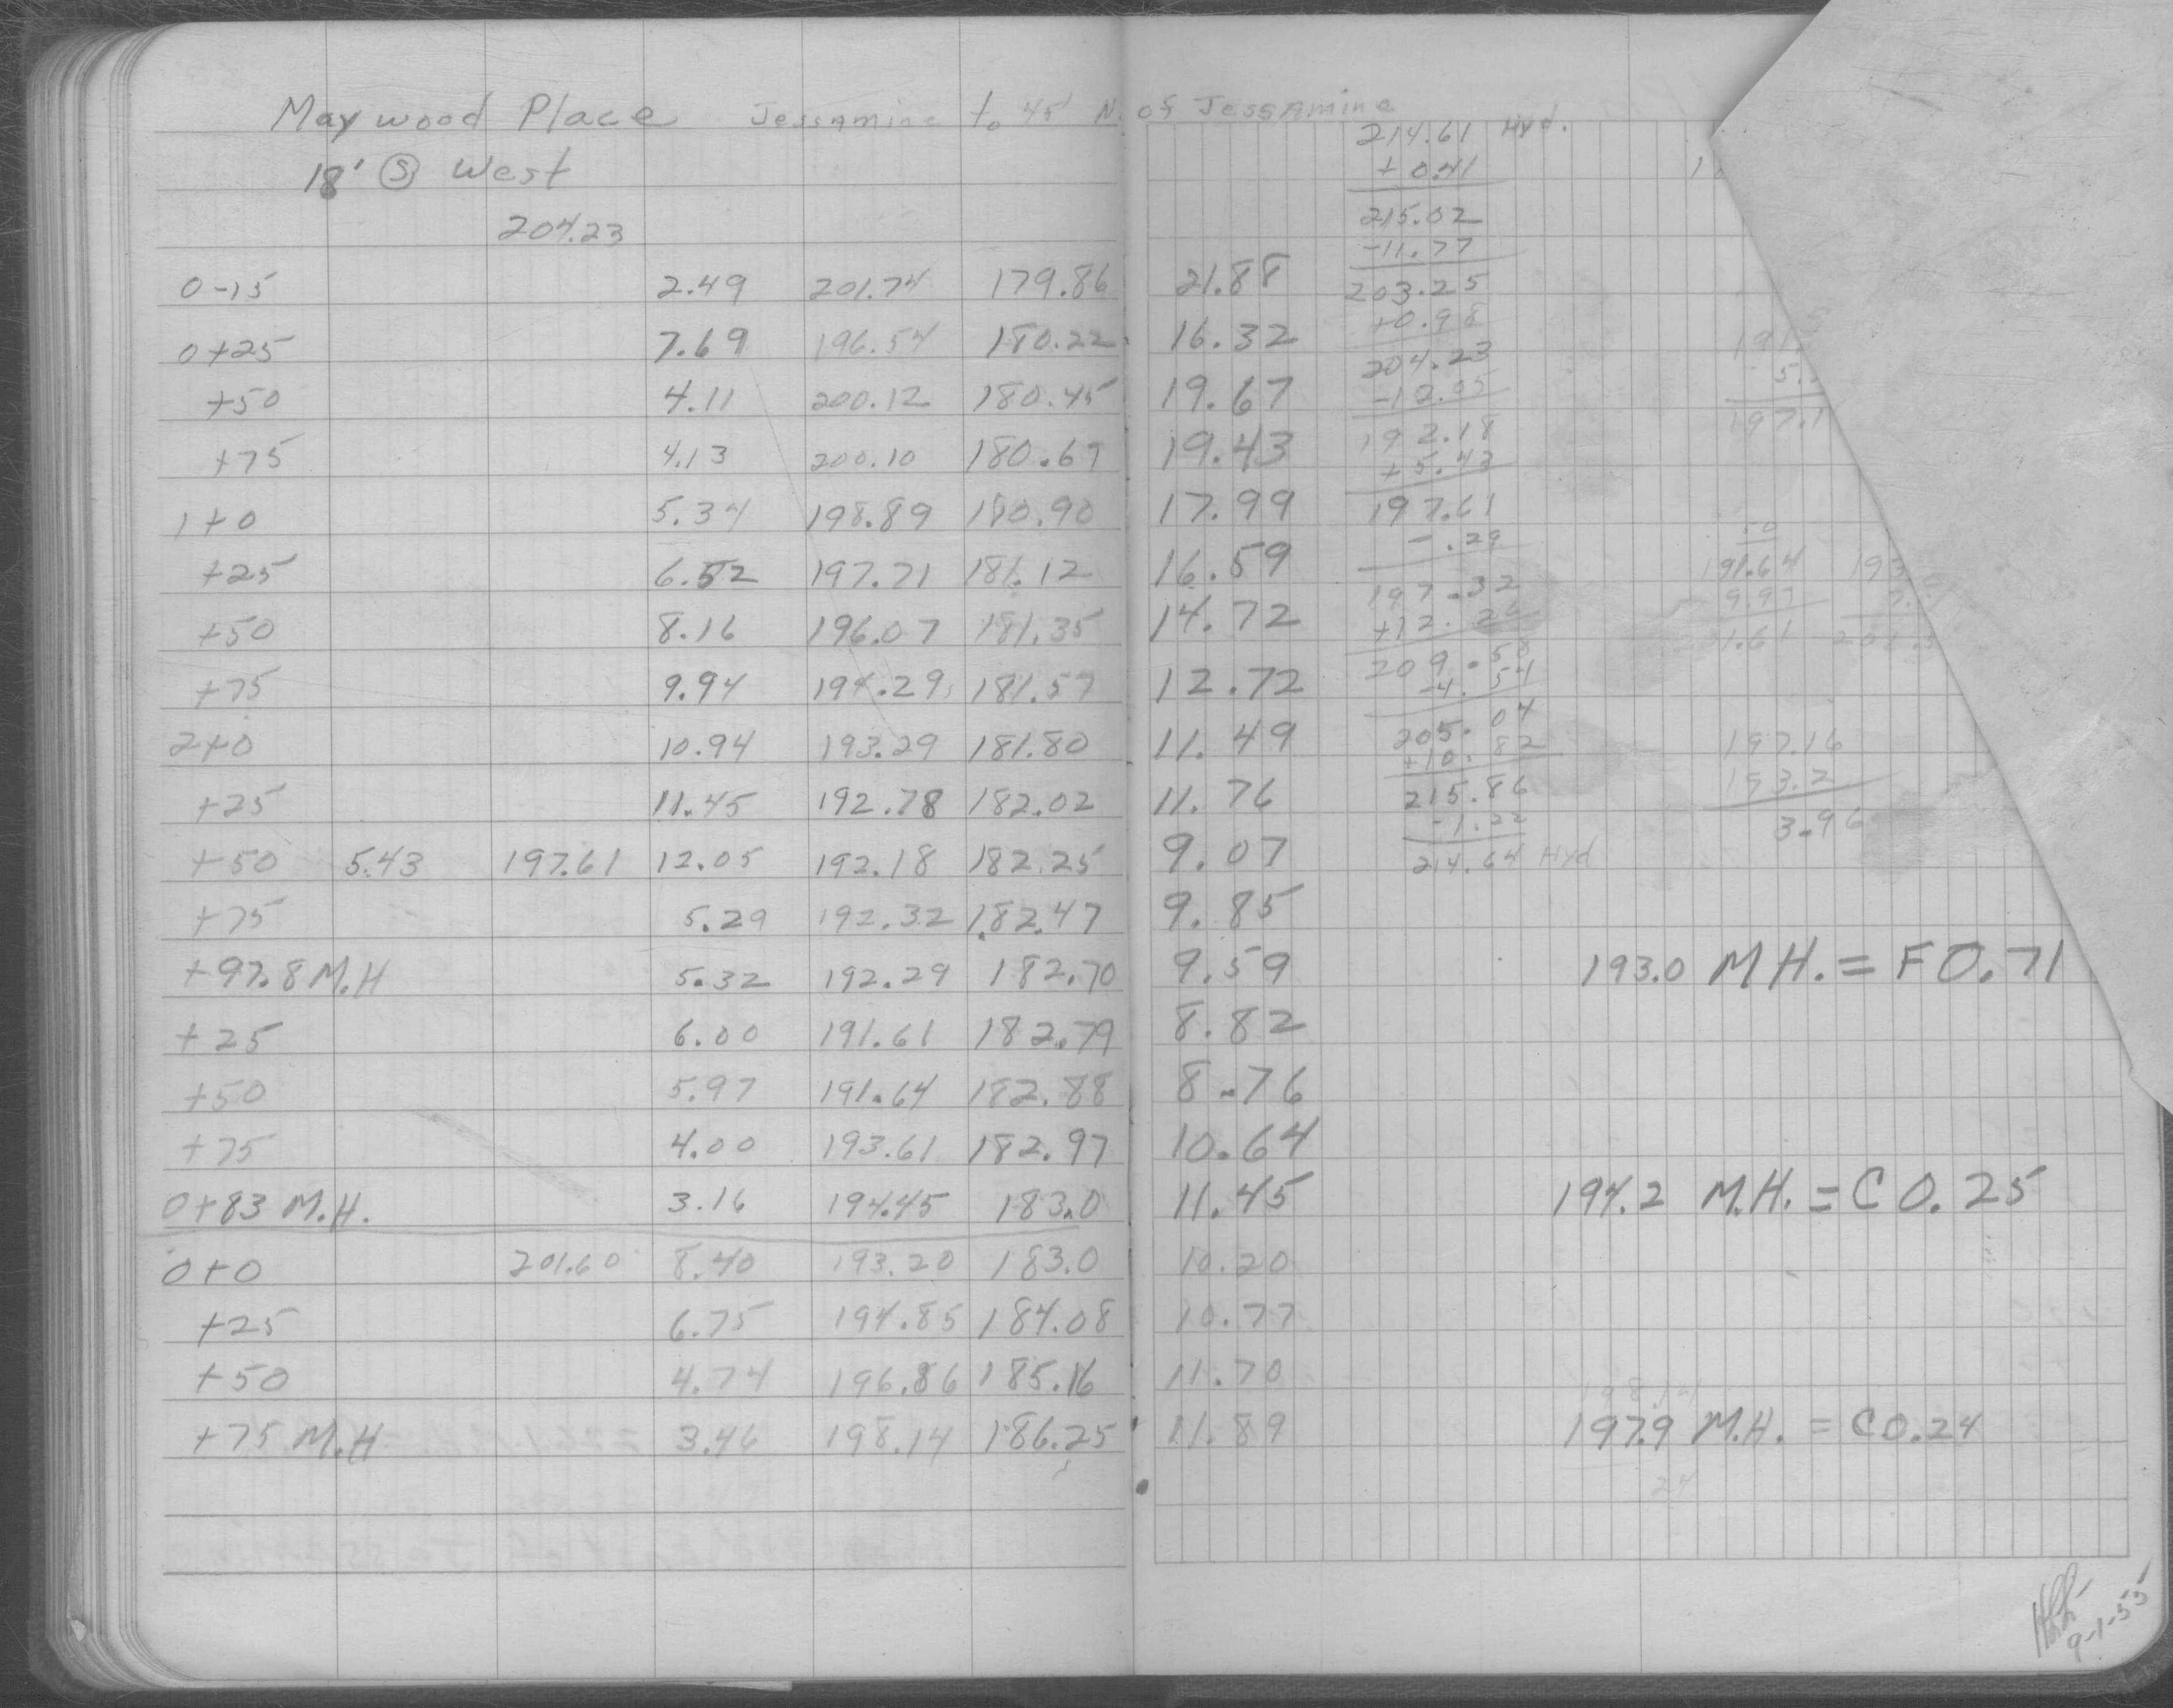 Maywood Place Jessamine to 45' N. of Jessamine
18' Ⓢ West
204.23
0-15 2.49 201.74 179.86 21.88
0+25 7.69 196.54 180.22 16.32
+50 4.11 200.12 180.45 19.67
+75 4.13 200.10 180.67 19.43
1+0 5.34 198.89 180.90 17.99
+25 6.52 197.71 181.12 16.59
+50 8.16 196.07 181.35 14.72
+75 9.94 194.29 181.57 12.72
2+0 10.94 193.29 181.80 11.49
+25 11.45 192.78 182.02 11.76
+50 5.43 197.61 12.05 192.18 182.25 9.07
+75 5.29 192.32 182.47 9.85
+97.8 M.H 5.32 192.29 182.70 9.59 193.0 M.H. = F0.71
+25 6.00 191.61 182.79 8.82
+50 5.97 191.64 182.88 8.76
+75 4.00 193.61 182.97 10.64
0+83 M.H. 3.16 194.45 183.0 11.45 194.2 M.H. = C0.25
0+0 201.60 8.40 193.20 183.0 10.20
+25 6.75 194.85 184.08 10.77
+50 4.74 196.86 185.16 11.70
198.14
+75 M.H 3.46 198.14 186.25 11.89 197.9 M.H. = C0.24
24
214.61 Hyd.
+0.41
215.02
-11.77
203.25
+0.98
204.23
-12.05
192.18
+5.43
197.61
-.29
197.32
+12.26
209.58
-4.54
205.04
+10.82
215.86
-1.22
214.64 Hyd
197.1
50
191.64
9.97
1.61
197.16
193.2
3.96
9-1-55